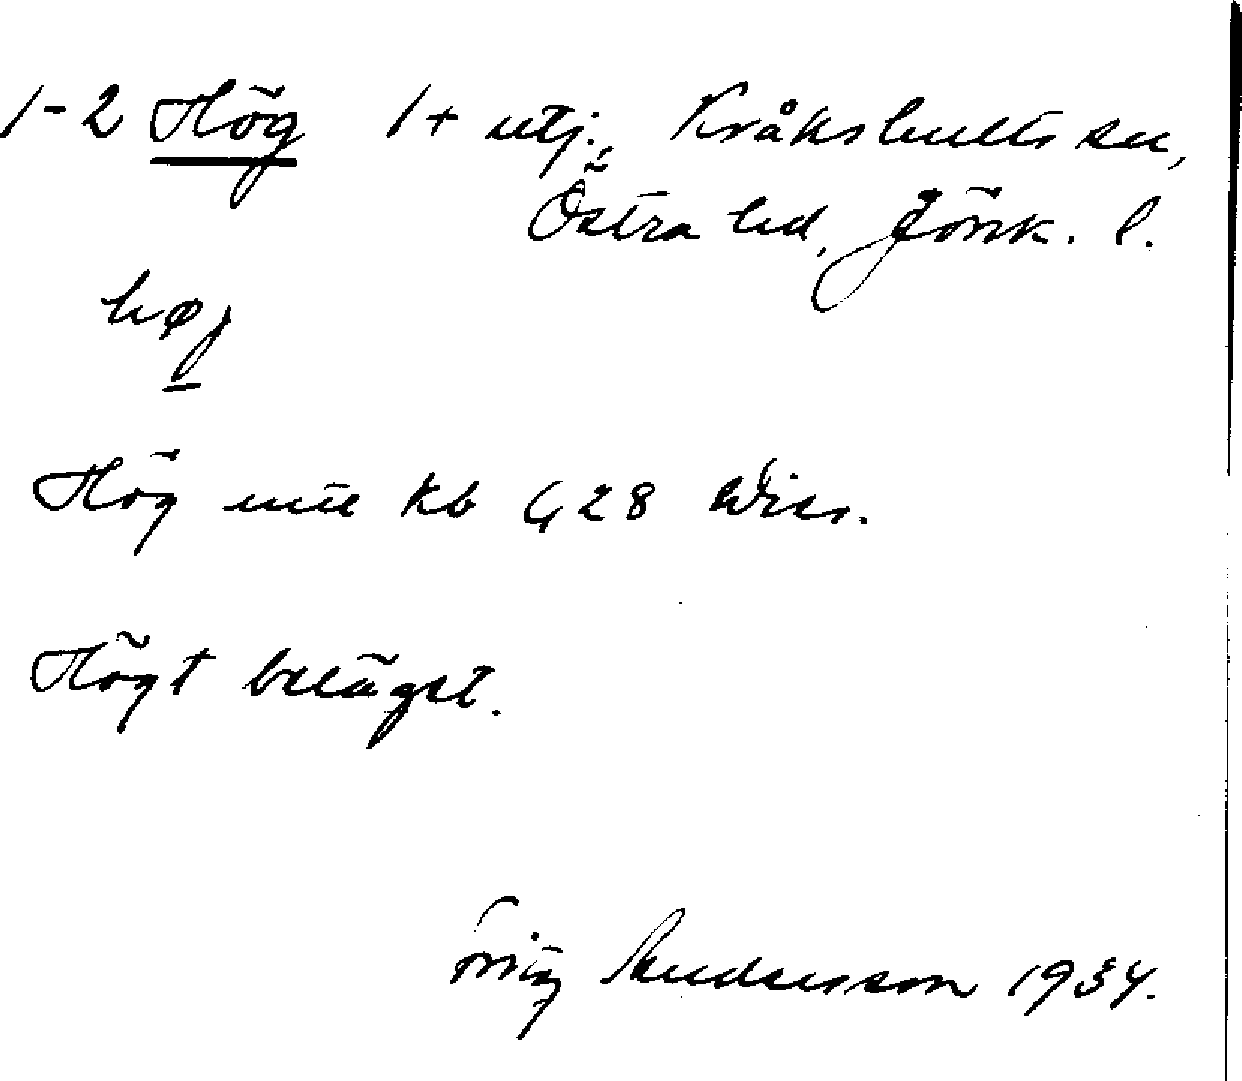 1-2 Hög 1+ utj., Kråkshults sn,
Östra hd, Jönk. l.
høj
Hög mtl kb 4,28 Wies.
Högt beläget.
Fritz Andersson 1934.